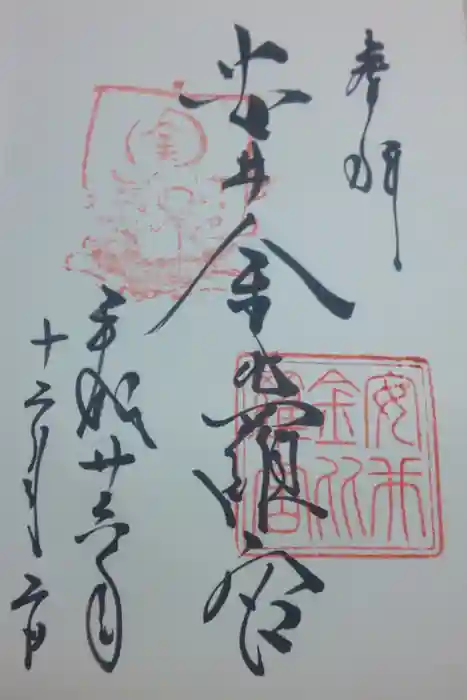 奉拝
安井金比羅宮
平成廿六年
十二月二日
安井
金比
羅宮